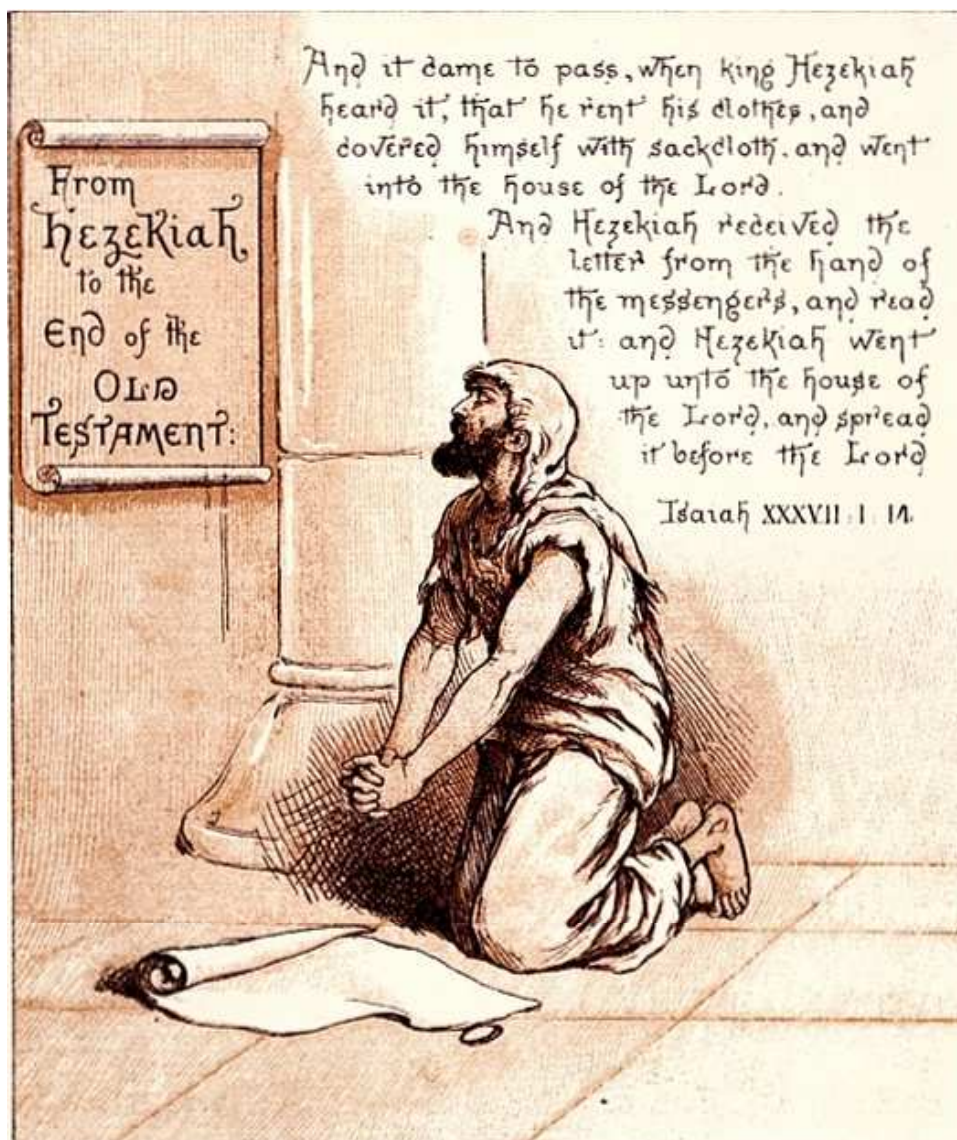 From
Hezekiah
to the
End of the
Old
Testament:
And it came to pass, when king Hezekiah
heard it, that he rent his clothes, and
covered himself with sackcloth. and went
into the house of the Lord.
And Hezekiah received the
letter from the hand of
the messengers, and read
it: and Hezekiah went
up unto the house of
the Lord, and spread
it before the Lord
Isaiah XXXVII:1:14.